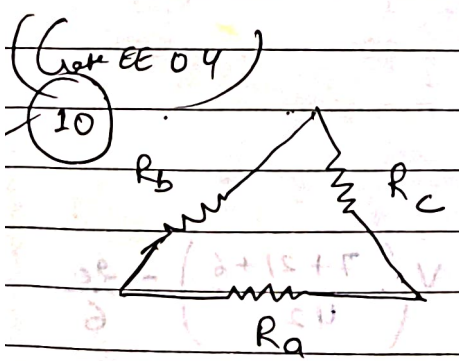 (Gate EE 04)
10
Rb
Rc
Ra